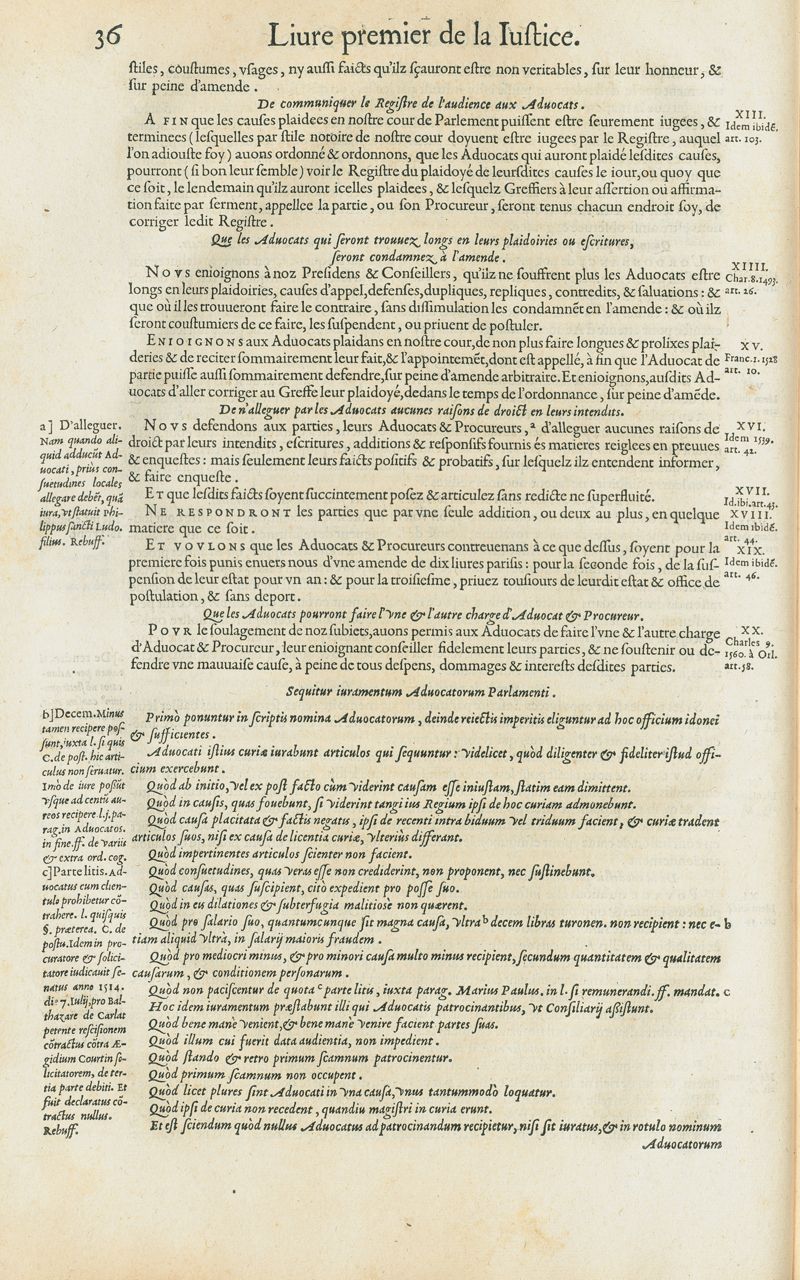 36
Liure premier de la Iuſtice.
ſtiles, couſtumes, vſages, ny auſſi faicts qu'ilz ſçauront eſtre non veritables, ſur leur honneur, &
ſur peine d'amende.
De communiquer le Regiſtre de l'audience aux Aduocats.
A FIN que les cauſes plaidees en noſtre cour de Parlement puiſſent eſtre ſeurement iugees, &
terminees (leſquelles par ſtile notoire de noſtre cour doyuent eſtre iugees par le Regiſtre, auquel
l'on adiouſte foy) auons ordonné & ordonnons, que les Aduocats qui auront plaidé leſdites cauſes,
pourront (ſi bon leur ſemble) voir le Regiſtre du plaidoyé de leurſdites cauſes le iour, ou quoy que
ce ſoit, le lendemain qu'ilz auront icelles plaidees, & leſquelz Greffiers à leur aſſertion ou affirma-
tion faite par ſerment, appellee la partie, ou ſon Procureur, ſeront tenus chacun endroit ſoy, de
corriger ledit Regiſtre.
XIII.
Idem ibidē.
art. 103.
Que les Aduocats qui ſeront trouuez longs en leurs plaidoiries ou eſcritures,
ſeront condamnez à l'amende.
NOVS enioignons à noz Preſidens & Conſeillers, qu'ilz ne ſouffrent plus les Aduocats eſtre
longs en leurs plaidoiries, cauſes d'appel, defenſes, dupliques, repliques, contredits, & ſaluations: &
que où il les trouueront faire le contraire, ſans diſſimulation les condamnēt en l'amende: & où ilz
ſeront couſtumiers de ce faire, les ſuſpendent, ou priuent de poſtuler.
XIIII.
Char.8.1493.
art. 26.
ENIOIGNONS aux Aduocats plaidans en noſtre cour, de non plus faire longues & prolixes plai-
deries & de reciter ſommairement leur fait, & l'appointemēt, dont eſt appellé, à fin que l'Aduocat de
partie puiſſe auſſi ſommairement defendre, ſur peine d'amende arbitraire. Et enioignons, auſdits Ad-
uocats d'aller corriger au Greffe leur plaidoyé, dedans le temps de l'ordonnance, ſur peine d'amēde.
XV.
Franc.1.1528
art. 10.
De n'alleguer par les Aduocats aucunes raiſons de droict en leurs intendits.
NOVS defendons aux parties, leurs Aduocats & Procureurs, a d'alleguer aucunes raiſons de
droict par leurs intendits, eſcritures, additions & reſponſifs fournis és matieres reiglees en preuues
& enqueſtes: mais ſeulement leurs faicts poſitifs & probatifs, ſur leſquelz ilz entendent informer,
& faire enqueſte.
XVI.
Idem 1539.
art. 42.
ET que leſdits faicts ſoyent ſuccintement poſez & articulez ſans redicte ne ſuperfluité.
XVII.
Id.ibi.art.43.
NE RESPONDRONT les parties que par vne ſeule addition, ou deux au plus, en quelque
matiere que ce ſoit.
XVIII.
Idem ibidē.
art. 44.
ET VOVLONS que les Aduocats & Procureurs contreuenans à ce que deſſus, ſoyent pour la
premiere fois punis enuers nous d'vne amende de dix liures pariſis: pour la ſeconde fois, de la ſuſ-
penſion de leur eſtat pour vn an: & pour la troiſieſme, priuez touſiours de leurdit eſtat & office de
poſtulation, & ſans deport.
XIX.
Idem ibidē.
art. 46.
Que les Aduocats pourront faire l'vne & l'autre charge d'Aduocat & Procureur.
POVR le ſoulagement de noz ſubiets, auons permis aux Aduocats de faire l'vne & l'autre charge
d'Aduocat & Procureur, leur enioignant conſeiller fidelement leurs parties, & ne ſouſtenir ou de-
fendre vne mauuaiſe cauſe, à peine de tous deſpens, dommages & intereſts deſdites parties.
XX.
Charles 9.
1560. à Orl.
art. 58.
a] D'alleguer.
Nam quando ali-
quid adducūt Ad-
uocati, priùs con-
ſuetudines locales
allegare debēt, quā
iura, vt ſtatuit Phi-
lippus ſancti Ludo.
filius. Rebuff.
Sequitur iuramentum Aduocatorum Parlamenti.
Primò ponuntur in ſcriptis nomina Aduocatorum, deinde reiectis imperitis eliguntur ad hoc officium idonei
& ſufficientes.
Aduocati iſtius curiæ iurabunt articulos qui ſequuntur: videlicet, quòd diligenter & fideliter iſtud offi-
cium exercebunt.
Quòd ab initio, vel ex poſt facto cùm viderint cauſam eſſe iniuſtam, ſtatim eam dimittent.
Quòd in cauſis, quas fouebunt, ſi viderint tangi ius Regium ipſi de hoc curiam admonebunt.
Quòd cauſa placitata & factis negatis, ipſi de recenti intra biduum vel triduum facient, & curiæ tradent
articulos ſuos, niſi ex cauſa de licentia curiæ, vlteriùs differant.
Quòd impertinentes articulos ſcienter non facient.
Quòd conſuetudines, quas veras eſſe non crediderint, non proponent, nec ſuſtinebunt.
Quòd cauſas, quas ſuſcipient, citò expedient pro poſſe ſuo.
Quòd in eis dilationes & ſubterfugia malitioſè non quærent.
Quòd pro ſalario ſuo, quantumcunque ſit magna cauſa, vltra b decem libras turonen. non recipient: nec e-
tiam aliquid vltrà, in ſalarij maioris fraudem.
b
Quòd pro mediocri minus, & pro minori cauſa multo minus recipient, ſecundum quantitatem & qualitatem
cauſarum, & conditionem perſonarum.
Quòd non paciſcentur de quota c parte litis, iuxta parag. Marius Paulus. in l. ſi remunerandi. ff. mandat.
c
Hoc idem iuramentum præſtabunt illi qui Aduocatis patrocinantibus, vt Conſiliarij aſſiſtunt.
Quòd bene manè venient, & bene manè venire facient partes ſuas.
Quòd illum cui fuerit data audientia, non impedient.
Quòd ſtando & retro primum ſcamnum patrocinentur.
Quòd primum ſcamnum non occupent.
Quòd licet plures ſint Aduocati in vna cauſa, vnus tantummodò loquatur.
Quòd ipſi de curia non recedent, quandiu magiſtri in curia erunt.
Et eſt ſciendum quòd nullus Aduocatus ad patrocinandum recipietur, niſi ſit iuratus, & in rotulo nominum
Aduocatorum
b] Decem. Minus
tamen recipere poſ-
ſunt, iuxta l. ſi quis
C. de poſt. hic arti-
culus non ſeruatur.
Imò de iure poſſūt
vſque ad centū au-
reos recipere l.j. pa-
rag. in Aduocatos.
in fine. ff. de variis
& extra ord. cog.
c] Parte litis. Ad-
uocatus cum clien-
tulo prohibetur cō-
trahere. l. quiſquis
§. præterea. C. de
poſtu. Idem in pro-
curatore & ſolici-
tatore iudicauit ſe-
natus anno 1514.
die 7. Iulij, pro Bal-
thazare de Carlat
petente reſciſionem
cōtractus cōtra Æ-
gidium Courtin ſo-
licitatorem, de ter-
tia parte debiti. Et
fuit declaratus cō-
tractus nullus.
Rebuff.